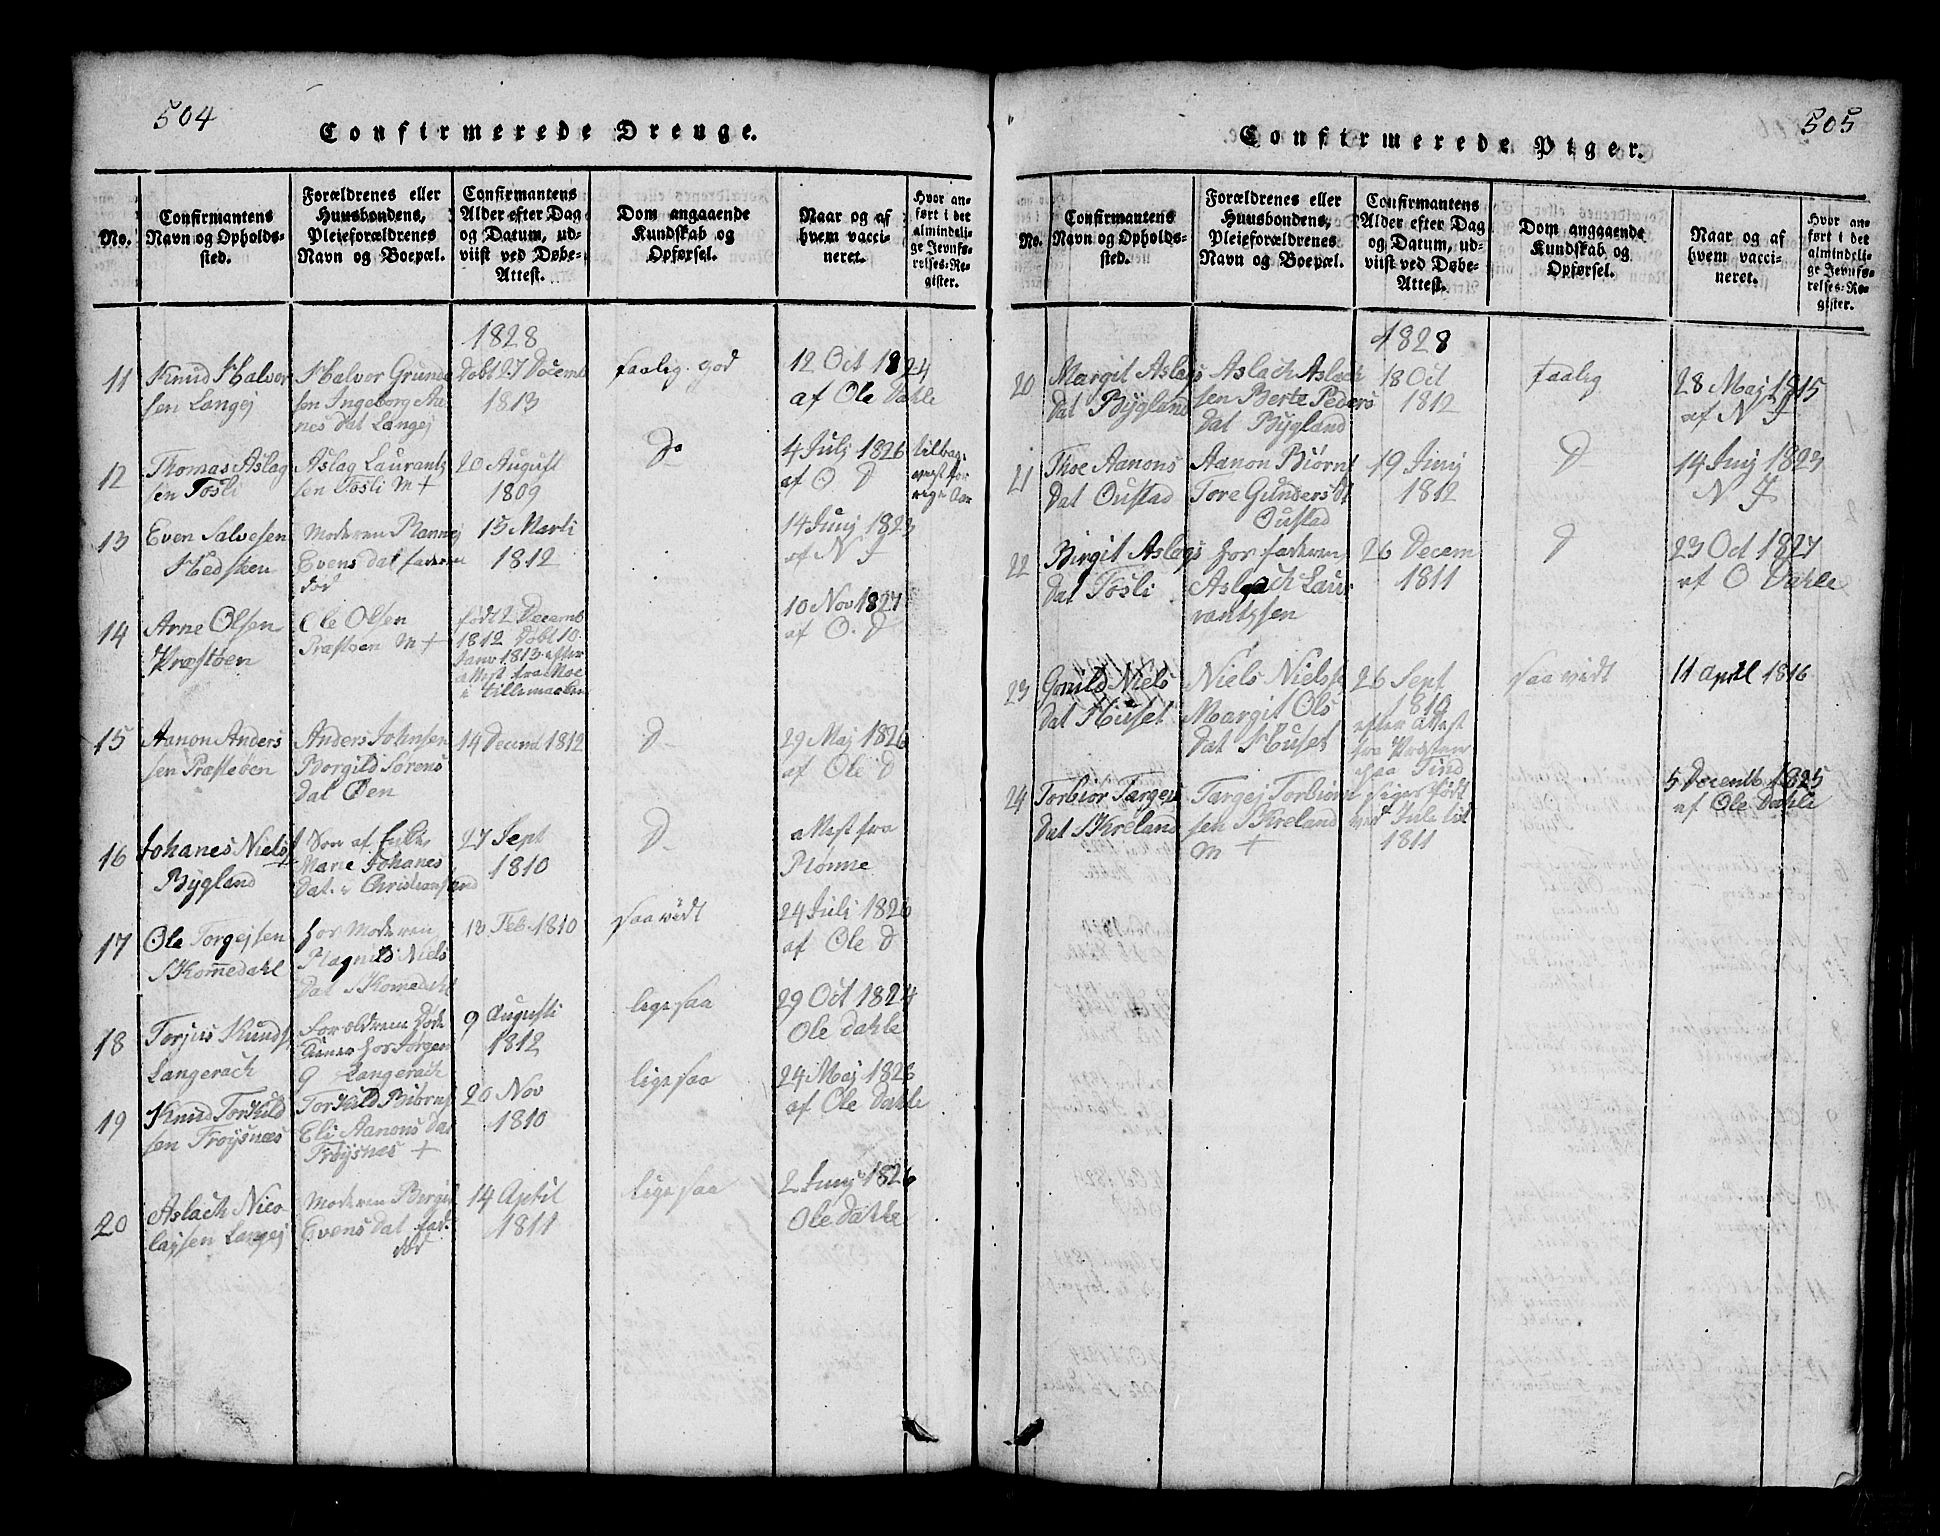 504
Confirmerede Drenge.
No.
Confirmantens
Navn og Opholds-
sted.
Forældrenes eller
Huusbondens,
Pleieforældrenes
Navn og Boepæl.
Confirmantens
Alder efter Dag
og Datum, ud-
viist ved Døbe-
Attest.
Dom angaaende
Kundskab og
Opførsel.
Naar og af
hvem vacci-
neret.
Hvor an-
ført i det
almindeli-
ge Jevnfø-
relses-Re-
gister.
1828
11
Knud Halvor
sen Langej
Halvor Grunde
sen Ingeborg Aa
nes dat Langej
Døbt 27 Decemb
1813
faalig god
12 Oct 1824
af Ole Dahle
12
Thomas Aslag
sen Tosli
Aslag Laurantz
sen Tosli M +
20 August
1809
Do
4 Juli 1826
af O. D
tilbag
vist for
rige Aar
13
Even Salvesen
Hedsken
Moderen Rannej
Evens dat faderen
død
15 Marti
1812
14 Junj 1823
af N J
14
Arne Olsen
Præstøen
Ole Olsen
Præstøen M +
født 2 Decemb
1812 Døbt 10
Janv 1813 efter
attest fra Moe
i Tillemarken
10 Nov 1827
af O. D
15
Aanon Anders
sen Præstøen
Anders Johnsen
Borgild Sørens
dat Øen
14 Decemb 1812
D
29 Maj 1826
af Ole D
16
Johanes Niels
Bygland
Søn af Enke
Marie Johanes
dat i Christiansand
27 Sept
1810
D
attest fra
Rønne
17
Ole Torgejsen
Skomedahl
hos Moderen
Ragnild Niels
dat Skomedahl
13 Feb. 1810
saavidt
24 Juli 1826
af Ole D
18
Torjus Knuds
Langerach
Foroldrene Døde
tiener hos Jorgen
G Langerach
9 Augusti
1812
ligesaa
29 Oct 1824
Ole Dahle
19
Knud Torkild
sen Frøysnæs
Torkild Biørns
Eli Aanons dat
Frøysnæs +
20 Nov
1810
ligesaa
24 Maj 1823
af Ole Dahle
20
Aslach Nico
lajsen Langej
Moderen Bergit
Evens dat fad.
død
14 April
1811
ligesaa
2 Junj 1826
Ole Dahle
505
Confirmerede Piger.
No.
Confirmantens
Navn og Opholds-
sted.
Forældrenes eller
Huusbondens,
Pleieforældrenes
Navn og Boepæl.
Confirmantens
Alder efter Dag
og Datum, ud-
viist ved Døbe-
Attest.
Dom angaaende
Kundskab og
Opførsel.
Naar og af
hvem vacci-
neret.
Hvor an-
ført i det
almindeli-
ge Jevnfø-
relses-Re-
gister.
1828
20
Margit Aslags
dat Bygland
Aslach Aslach
sen Berte Peders
dat Bygland
18 Oct
1812
faalig
28 Maj 1815
af N J
21
Thoe Aanons
dat Oustad
Aanon Biørns
Tore Gundersdt
Oustad
19 Junj
1812
D
14 Junj 1823
N J
22
Birgit Aslags
dat Tosli
hos faderen
Aslach Lau
rantzsen
26 Decem
1811
D
23 Oct 1827
af O Dahle
23
Gonild Niels
dat Huset
Niels Nielss
Margit Ols
dat Huset
26 Sept
1810
efter attest
fra Præsten
paa Tind
saavidt
11 april 1816
24
Torbiør Targejs
dat Skreland
Targej Torbiøns
sen Skreland
M +
siges født
ved Jule tid
1811
5 Decemb 1825
af Ole Dahle